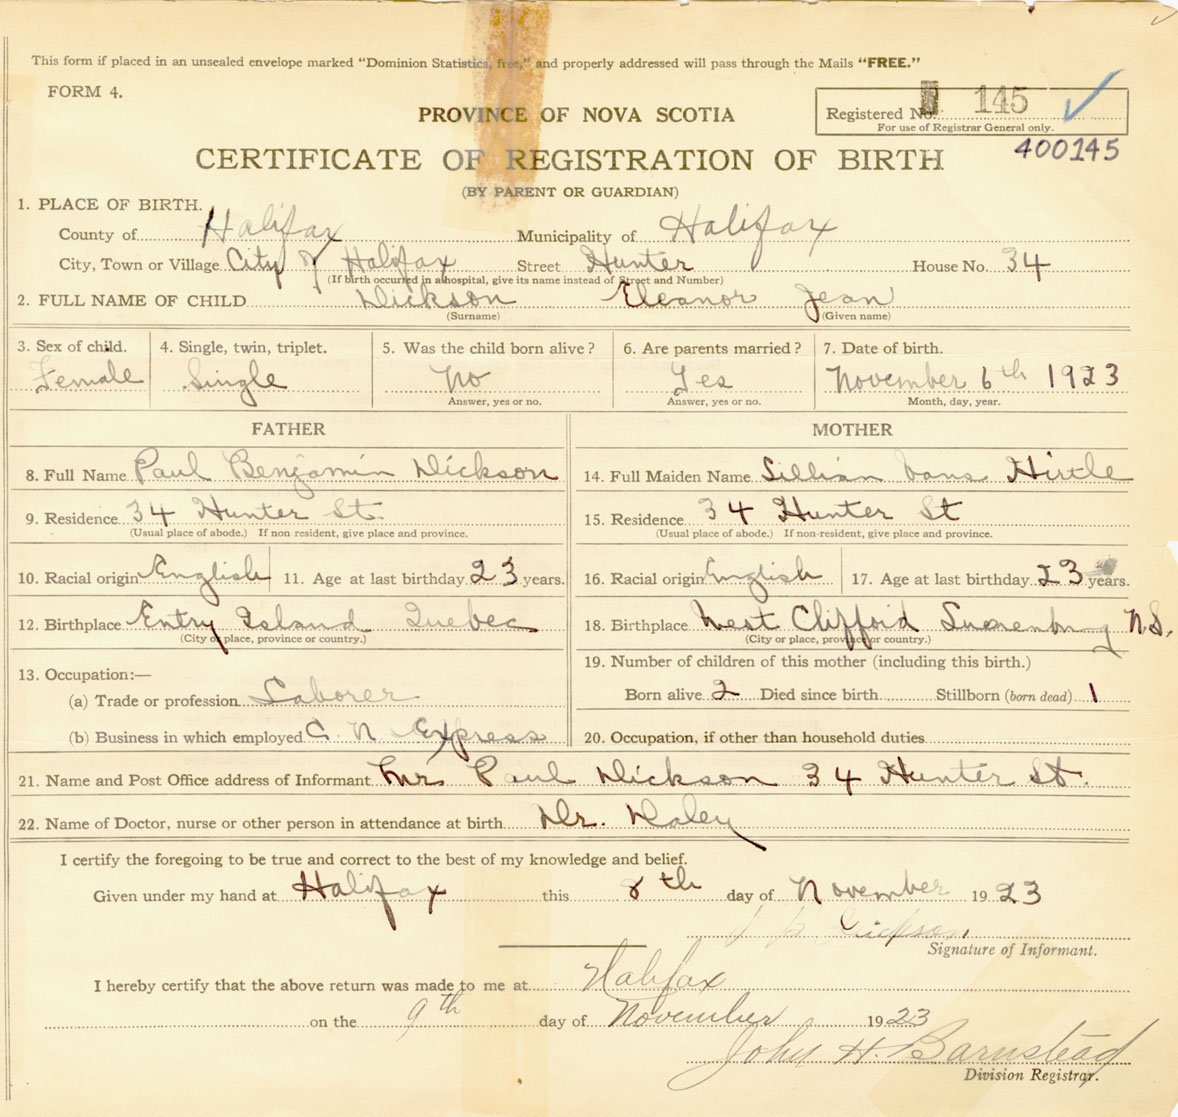 This form if placed in an unsealed envelope marked "Dominion Statistics, free," and properly addressed will pass through the Mails "FREE."
FORM 4.
PROVINCE OF NOVA SCOTIA
Registered No. 145
For use of Registrar General only.
400145
CERTIFICATE OF REGISTRATION OF BIRTH
(BY PARENT OR GUARDIAN)
1. PLACE OF BIRTH.
County of Halifax Municipality of Halifax
City, Town or Village City of Halifax Street Hunter House No. 34
(If birth occurred in a hospital, give its name instead of Street and Number)
2. FULL NAME OF CHILD Dickson Eleanor Jean
(Surname) (Given name)
3. Sex of child. 4. Single, twin, triplet. 5. Was the child born alive? 6. Are parents married? 7. Date of birth.
Female Single No Yes November 6th 1923
Answer, yes or no. Answer, yes or no. Month, day, year.
FATHER MOTHER
8. Full Name Paul Benjamin Dickson 14. Full Maiden Name Lillian Hirtle
9. Residence 34 Hunter St. 15. Residence 34 Hunter St
(Usual place of abode.) If non resident, give place and province. (Usual place of abode.) If non-resident, give place and province.
10. Racial origin English 11. Age at last birthday 23 years. 16. Racial origin English 17. Age at last birthday 23 years.
12. Birthplace Entry Island Quebec 18. Birthplace West Clifford Lunenburg N.S.
(City or place, province or country.) (City or place, province or country.)
13. Occupation:— 19. Number of children of this mother (including this birth.)
(a) Trade or profession Laborer Born alive 2 Died since birth Stillborn (born dead) 1
(b) Business in which employed C. N Express 20. Occupation, if other than household duties
21. Name and Post Office address of Informant Mr. Paul Dickson 34 Hunter St.
22. Name of Doctor, nurse or other person in attendance at birth Dr. Daley
I certify the foregoing to be true and correct to the best of my knowledge and belief.
Given under my hand at Halifax this 8th day of November 1923
Dickson
Signature of Informant.
I hereby certify that the above return was made to me at Halifax
on the 9th day of November 1923
John H. Barnstead
Division Registrar.